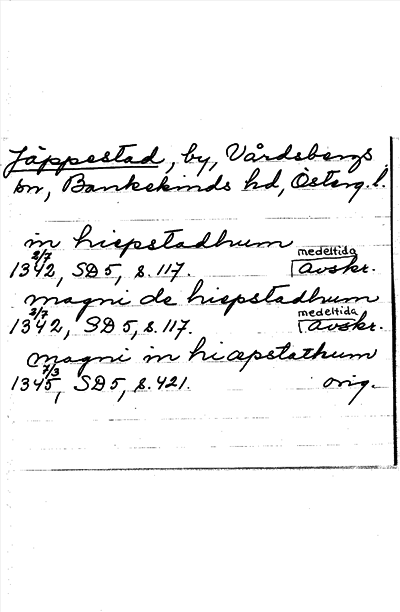 Jäppestad, by, Vårdsbergs
sn, Bankekinds hd, Österg. l.
in hiepstadhum
2/7 medeltida
1342, SD 5, s. 117. avskr.
magni de hiepstadhum
2/7 medeltida
1342, SD 5, s. 117. avskr.
magni in hiæpstathum
7/3
1345, SD 5, s. 421. orig.